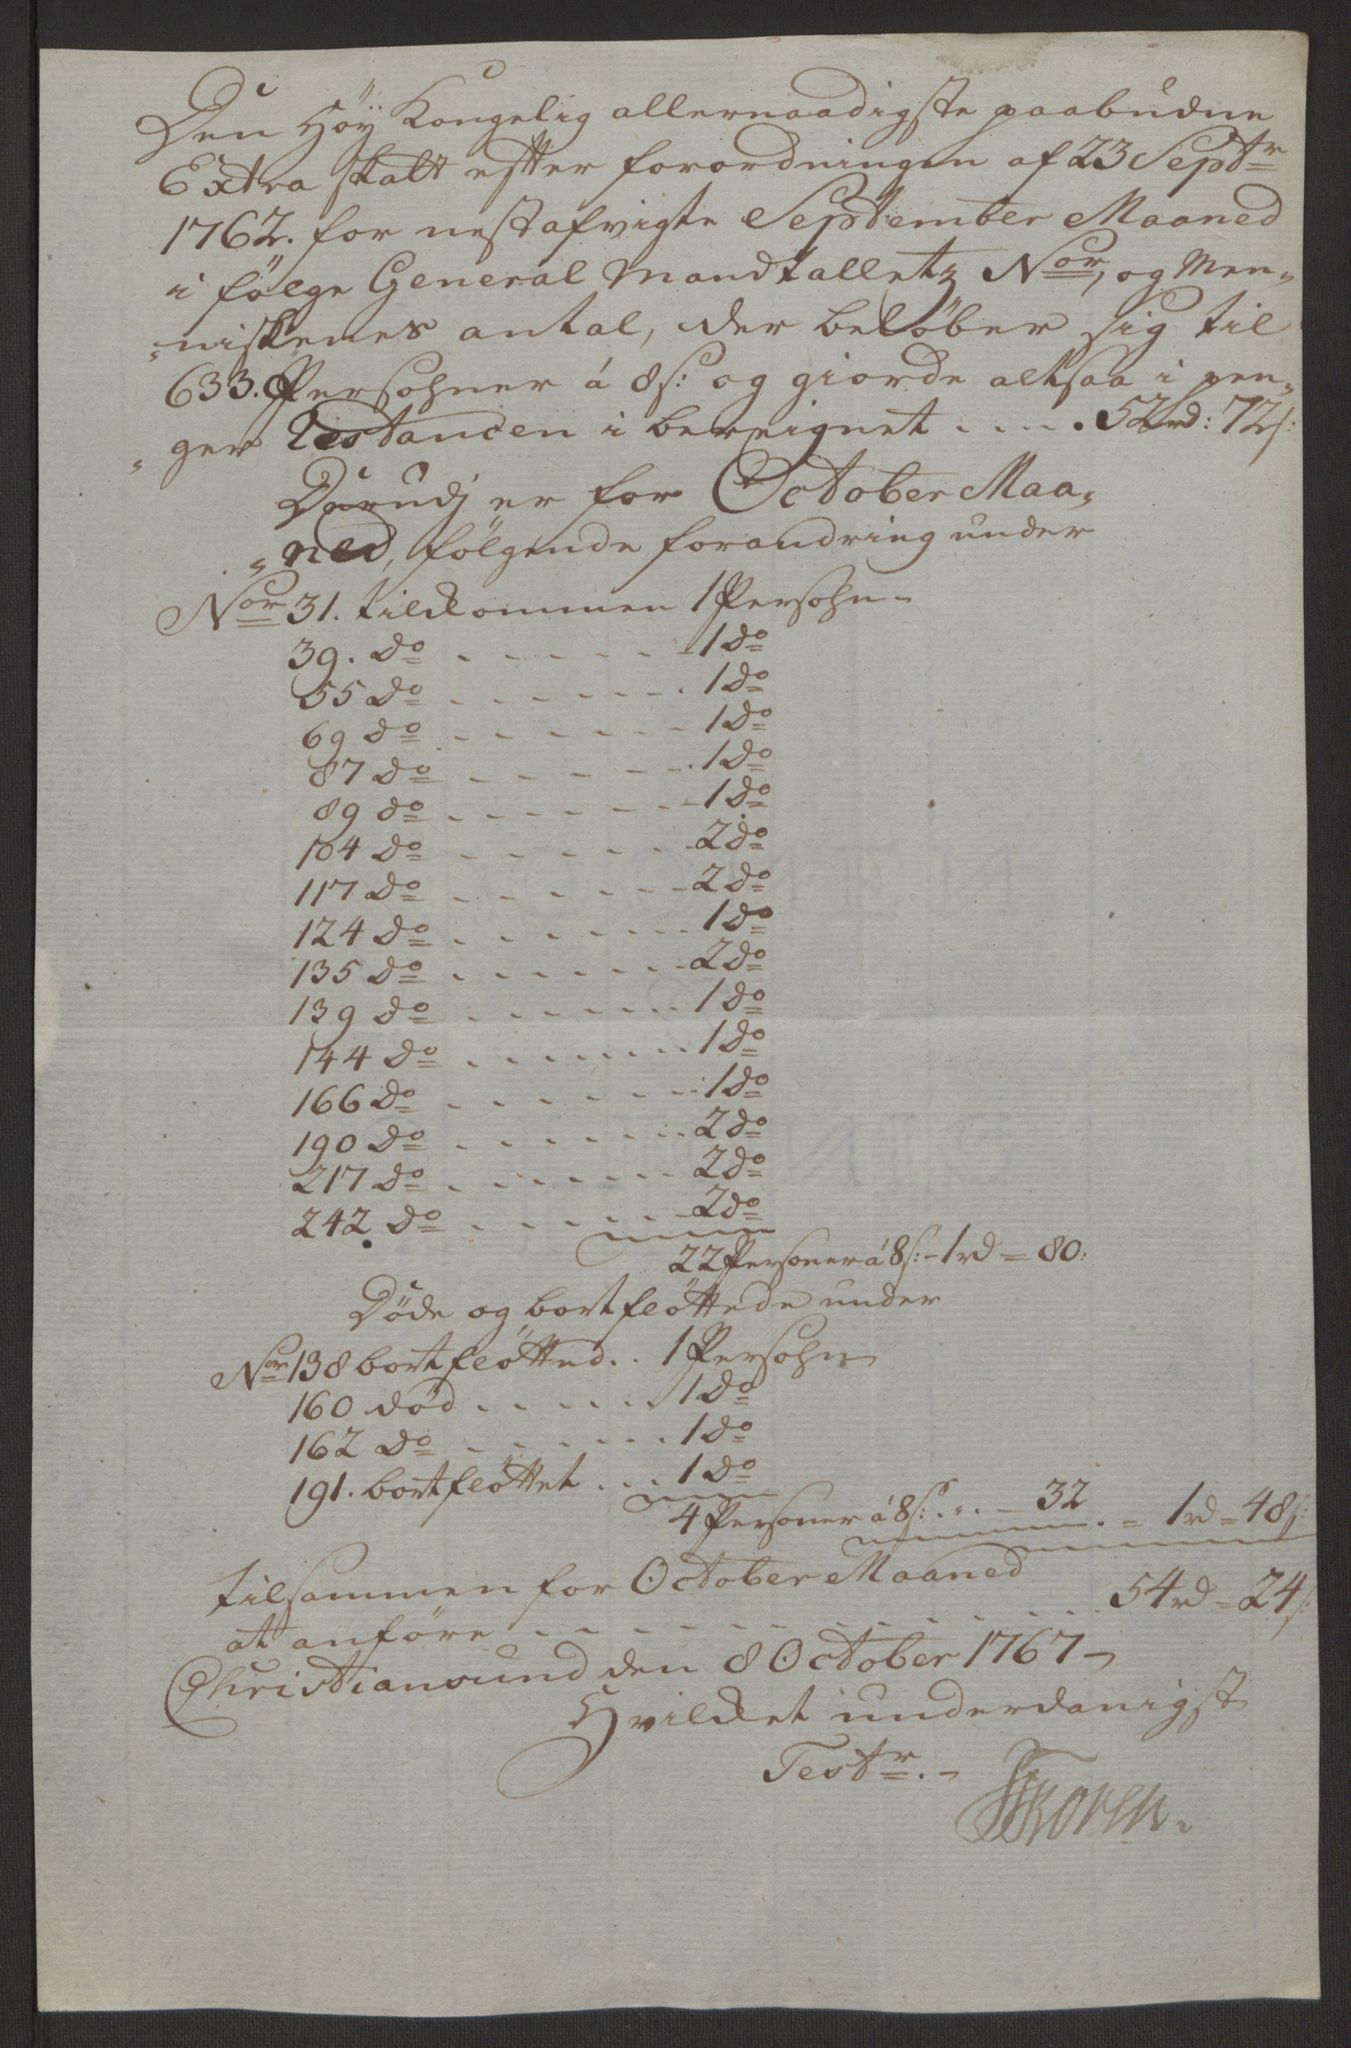 Den Höÿ Kongelig allernaadigste paabudne
Extra skatt efter forordningen af 23 Septr
1762. for nestafvigte September Maaned
i fölge General Mandtalletz Nor, og Men„
„niskenes antal, der belöber sig til
633. Persohner á 8 s: og giorde altsaa i pen„
„ger Restancen i bereignet .... 52 rd: 72 s:
Derudj er for October Maa„
„ned, fölgende forandring under
Nor 31. tilkommen 1 Persohn-
39. do ...... 1 do
55 do ...... 1 do
69 do ...... 1 do
87 do ...... 1 do
89 do ...... 1 do
104 do ...... 2 do
117 do ...... 2 do
124 do ...... 1 do
135 do ...... 2 do
139 do ...... 1 do
144 do ...... 1 do
166 do ...... 1 do
190 do ...... 2 do
217 do ...... 2 do
242. do ...... 2 do
22 Personer á 8 s: - 1 rd = 80:
Döde og bortflöttede under
Nor 138 bortflötted .. 1 Persohn
160 död ...... 1 do
162 do ...... 1 do
191. bortflöttet ... 1 do
4 Personer á 8 s: ... - 32 . - 1 rd = 48 s:
tilsammen for October Maaned
at anföre ............ 54 rd = 24 s:
Christiansund den 8 October 1767-
Hvilket underdanigst
Testr. -
Koren.